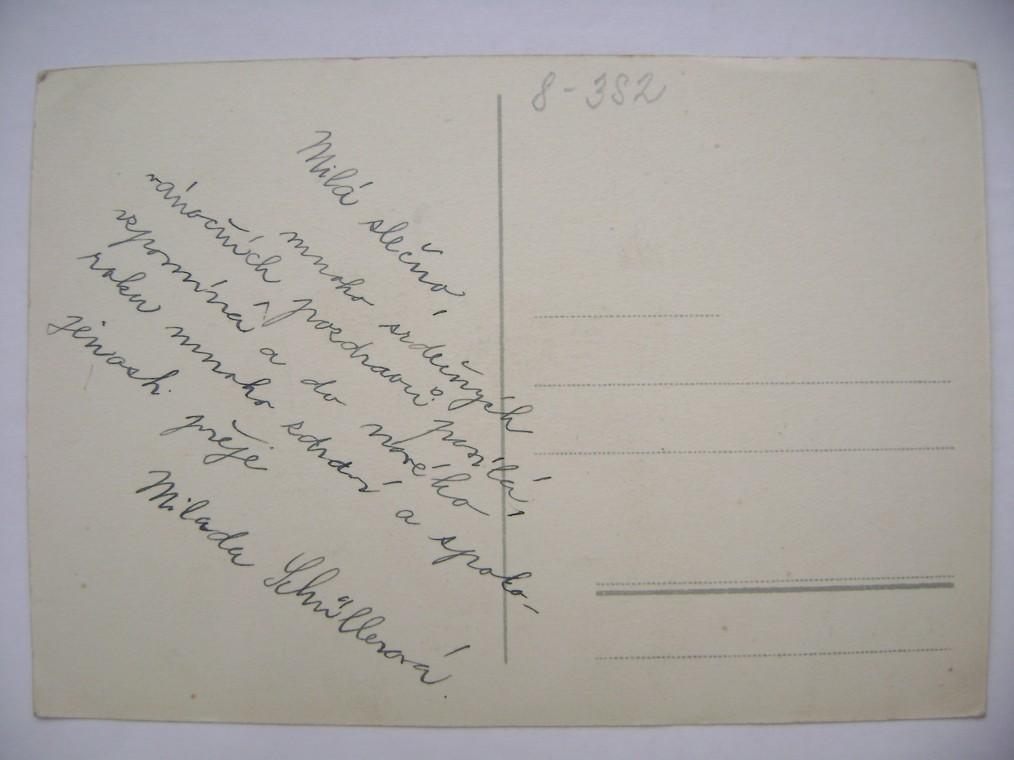 8-352
Milá slečno,
mnoho srdečných
vánočních pozdravů posílá,
vzpomíná a do nového
roku mnoho zdraví a spoko-
jenosti přeje
Milada Schüllerová.